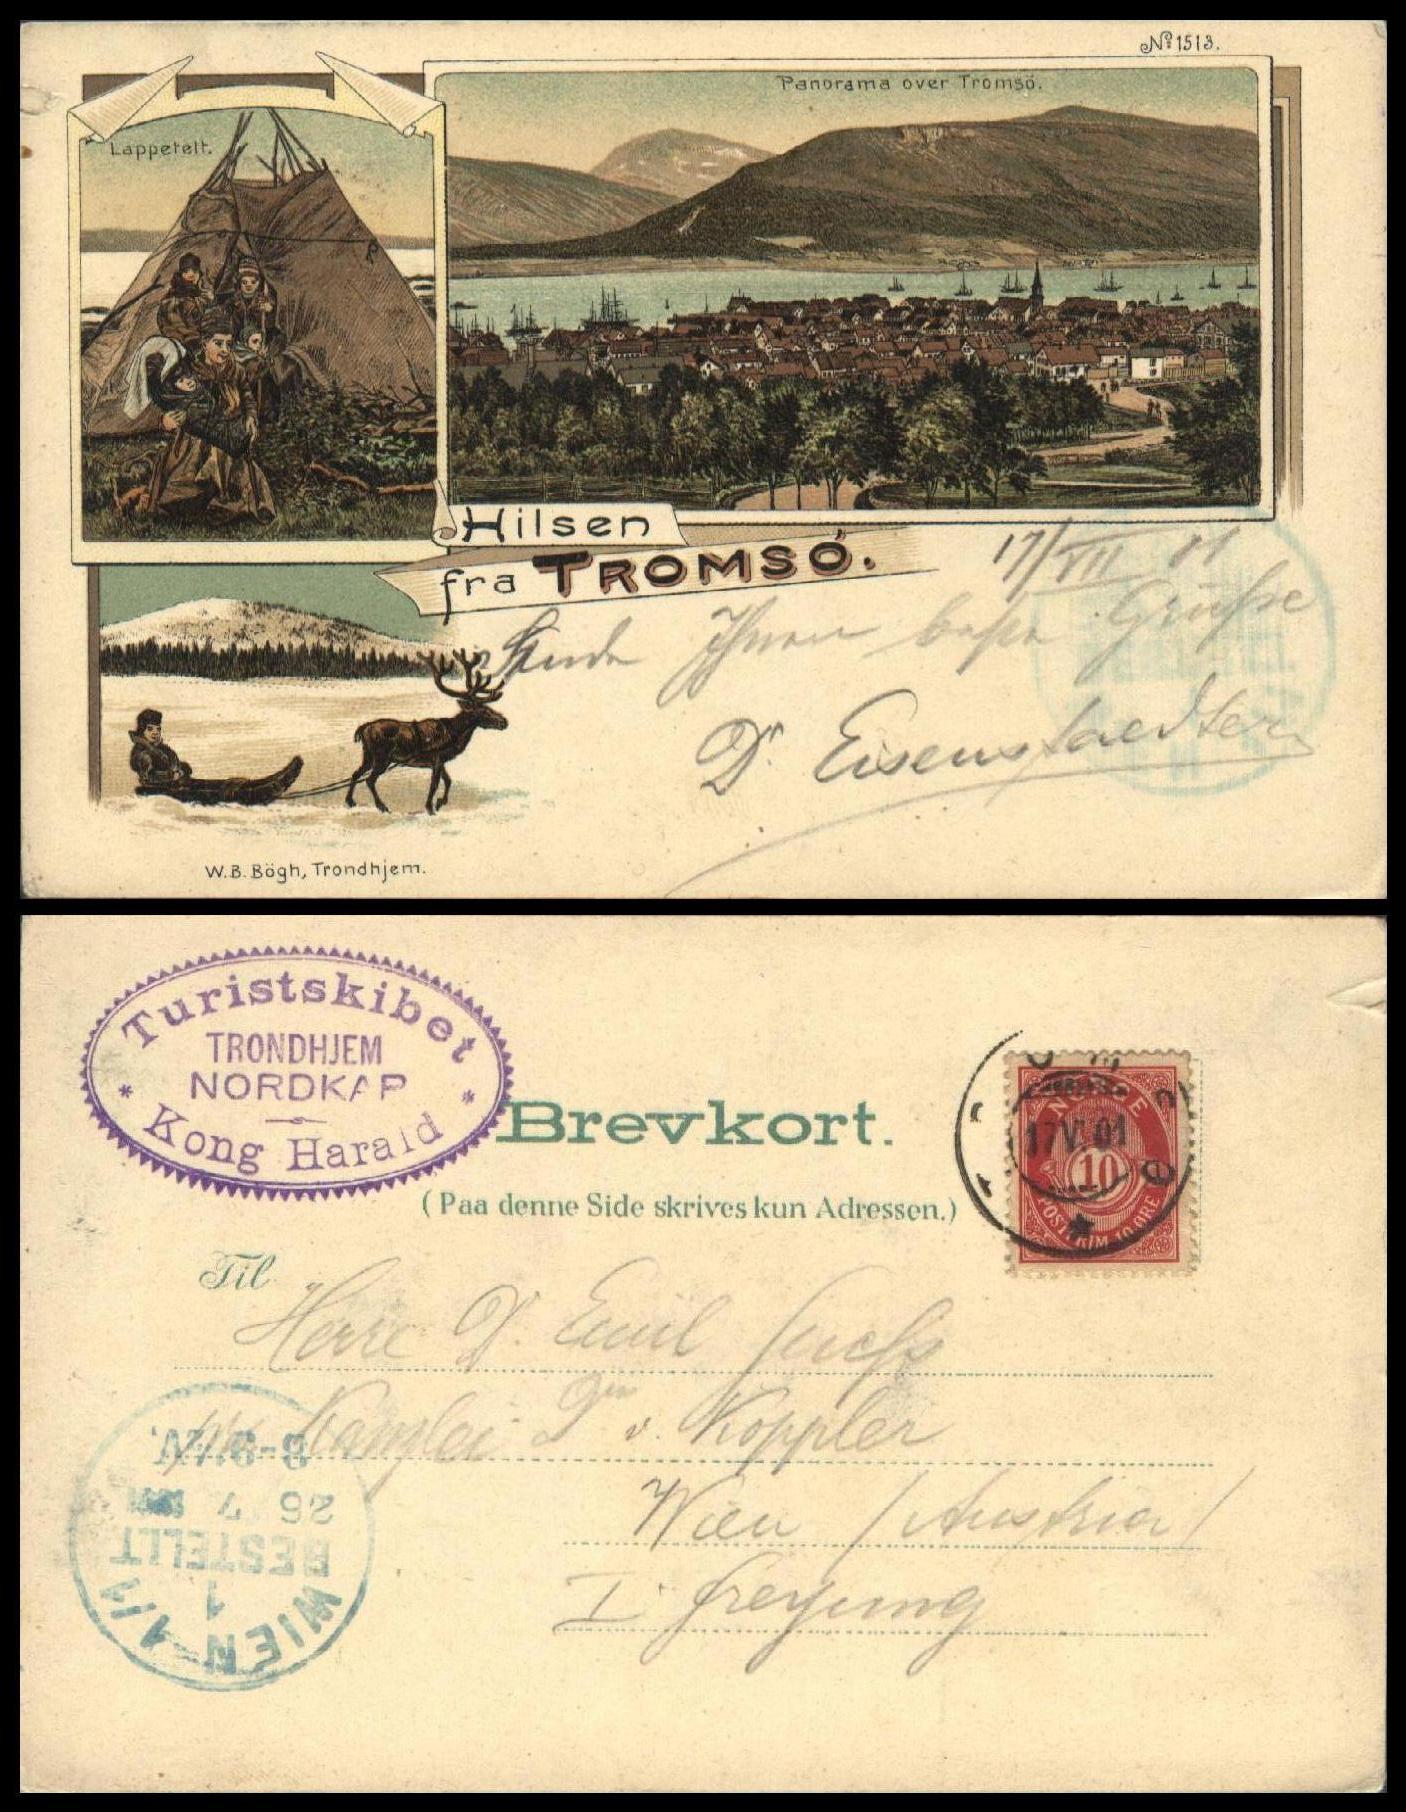 Nº 1513.
Panorama over Tromsö.
Lappetelt.
Hilsen
fra TROMSÖ.
17/VII 01
Sende Ihnen beste Grüße
Dr Eisenstaedter
W.B. Bögh, Trondhjem.
Turistskibet
TRONDHJEM
NORDKAP
* Kong Harald *
Brevkort.
(Paa denne Side skrives kun Adressen.)
NORGE
17 VII 01
10
POSTFRIM. 10 ØRE
Til
Herrn Dr. Emil
Kanzlei Drn v. Koppler
Wien /Austria/
I. Freyung
8-9½V.
26 7
BESTELLT
1
WIEN 1/1